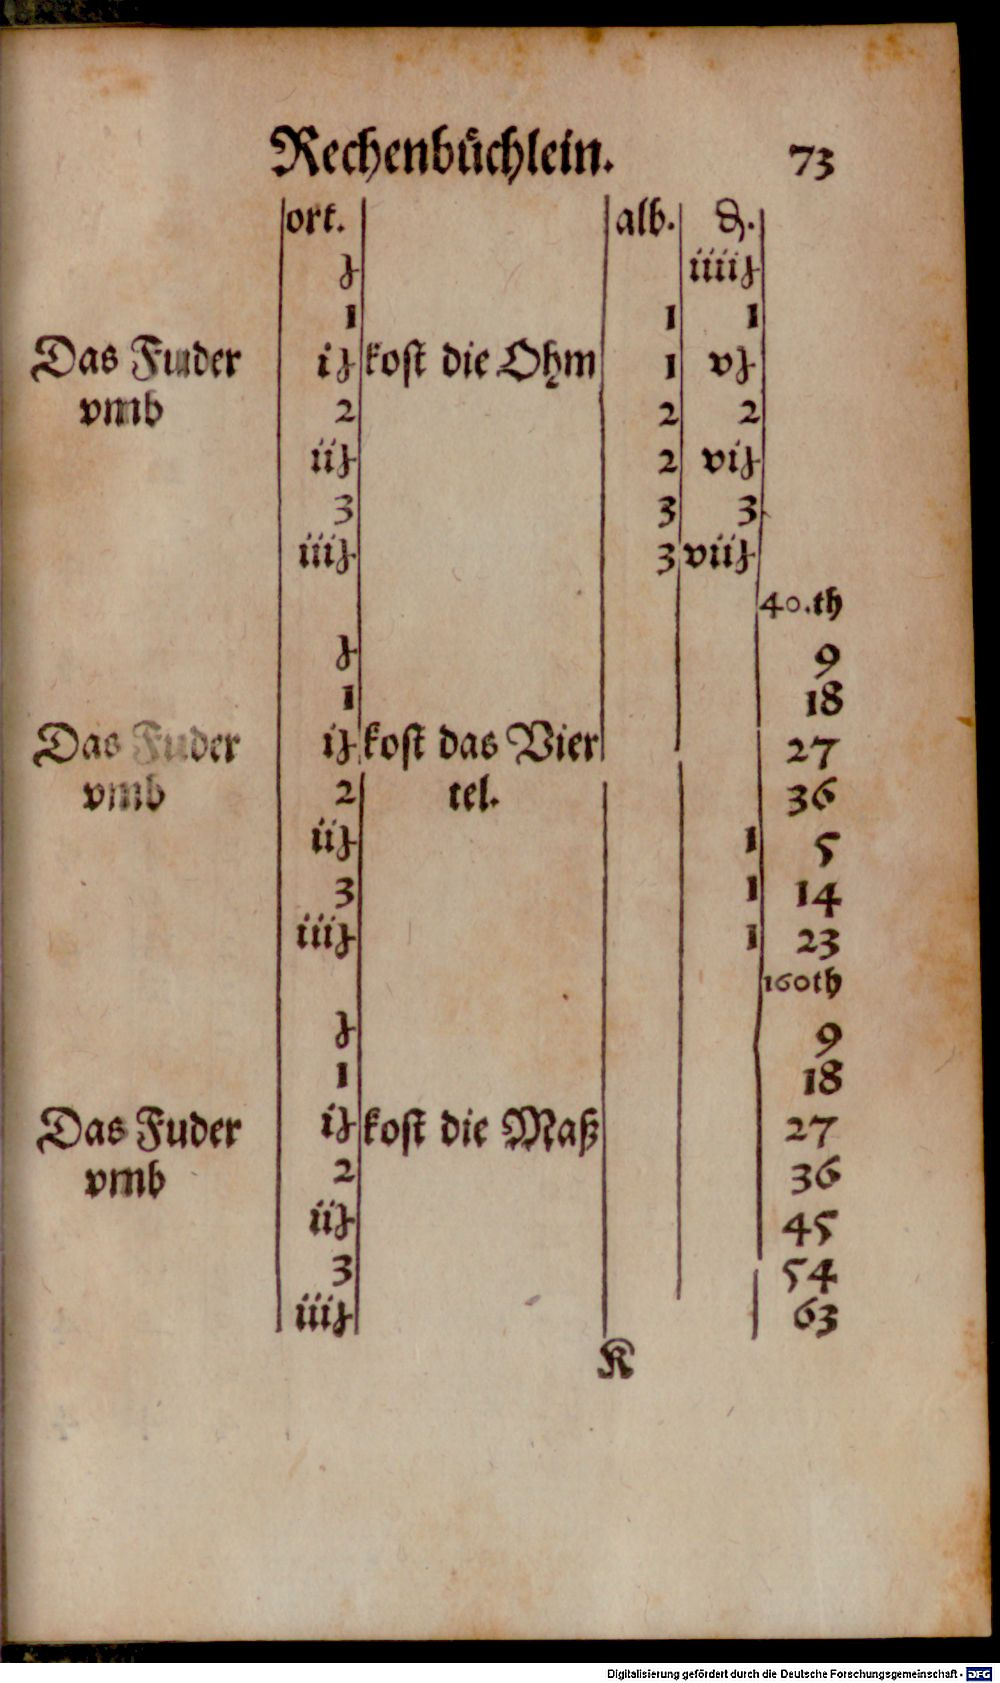 Rechenbüchlein. 73
ort. alb. ₰.
ȷ iiiiȷ
1 1 1
Das Fuder iȷ kost die Ohm 1 vȷ
vmb 2 2 2
iiȷ 2 viȷ
3 3 3
iiiȷ 3 viiȷ
40.th
ȷ 9
1 18
Das Fuder iȷ kost das Vier 27
vmb 2 tel. 36
iiȷ 1 5
3 1 14
iiiȷ 1 23
160th
ȷ 9
1 18
Das Fuder iȷ kost die Maß 27
vmb 2 36
iiȷ 45
3 54
iiiȷ 63
K
Digitalisierung gefördert durch die Deutsche Forschungsgemeinschaft - DFG